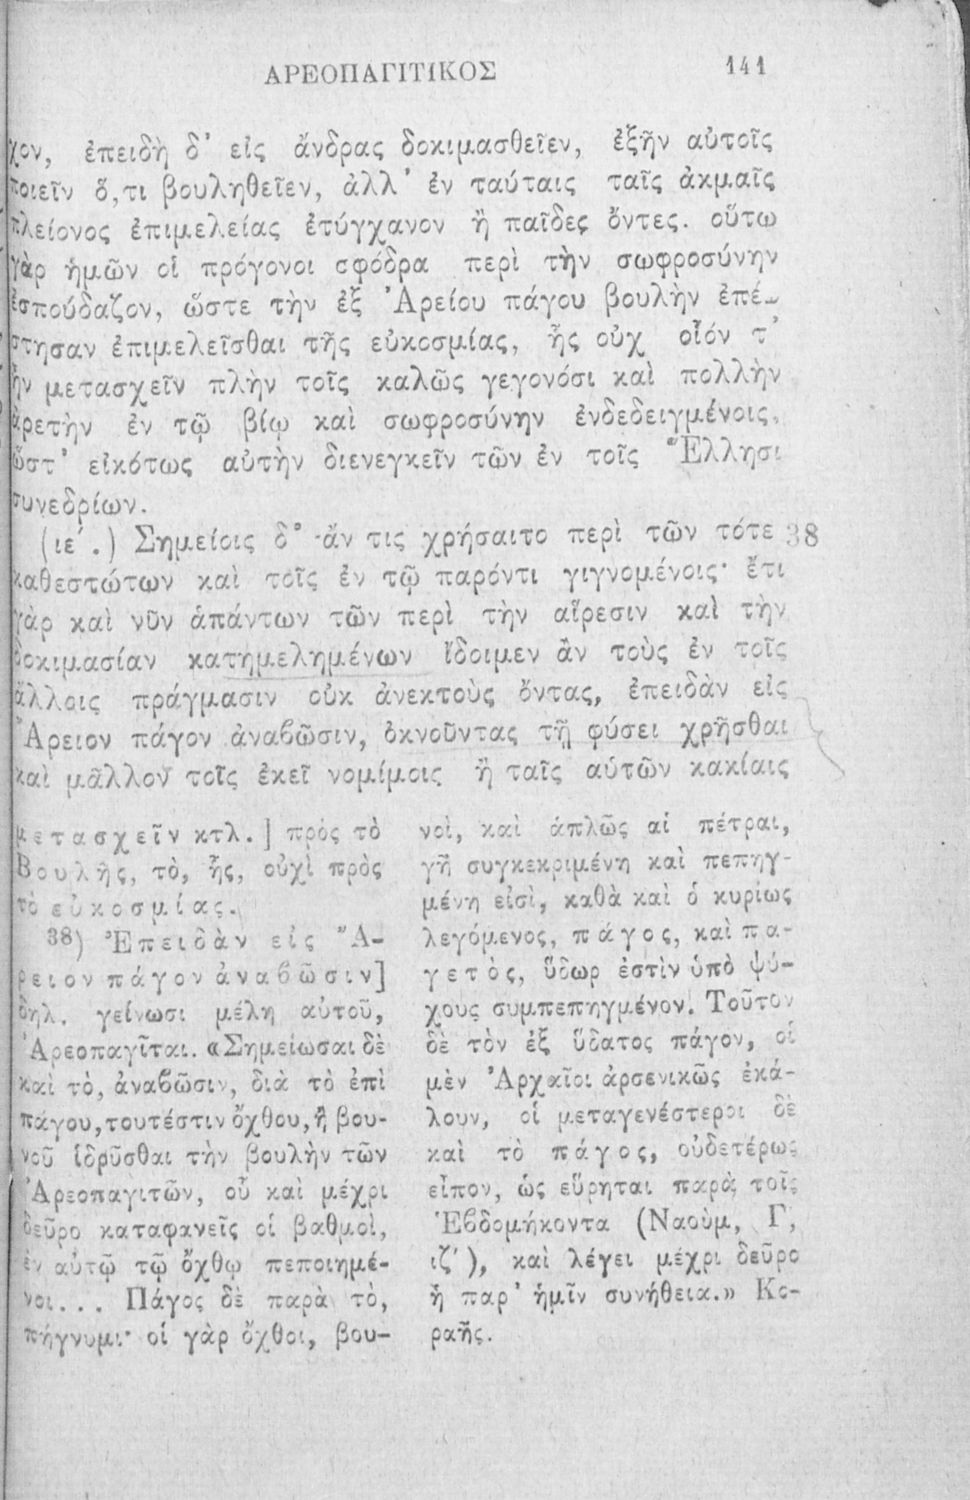 ΑΡΕΟΠΑΓΙΤΙΚΟΣ 141
χον, ἐπειδὴ δ' εἰς ἄνδρας δοκιμασθεῖεν, ἐξῆν αὐτοῖς
ποιεῖν ὅ,τι βουληθεῖεν, ἀλλ' ἐν ταύταις ταῖς ἀκμαῖς
πλείονος ἐπιμελείας ἐτύγχανον ἢ παῖδες ὄντες. οὕτω
γὰρ ἡμῶν οἱ πρόγονοι σφόδρα περὶ τὴν σωφροσύνην
ἐσπούδαζον, ὥστε τὴν ἐξ Ἀρείου πάγου βουλὴν ἐπέ-
στησαν ἐπιμελεῖσθαι τῆς εὐκοσμίας, ἧς οὐχ οἷόν τ'
ἦν μετασχεῖν πλὴν τοῖς καλῶς γεγονόσι καὶ πολλὴν
ἀρετὴν ἐν τῷ βίῳ καὶ σωφροσύνην ἐνδεδειγμένοις,
ὥστ' εἰκότως αὐτὴν διενεγκεῖν τῶν ἐν τοῖς Ἕλλησι
συνεδρίων.
(ιε΄.) Σημείοις δ' ἄν τις χρήσαιτο περὶ τῶν τότε 38
καθεστώτων καὶ τοῖς ἐν τῷ παρόντι γιγνομένοις· ἔτι
γὰρ καὶ νῦν ἁπάντων τῶν περὶ τὴν αἵρεσιν καὶ τὴν
δοκιμασίαν κατημελημένων ἴδοιμεν ἂν τοὺς ἐν τοῖς
ἄλλοις πράγμασιν οὐκ ἀνεκτοὺς ὄντας, ἐπειδὰν εἰς
Ἄρειον πάγον ἀναβῶσιν, ὀκνοῦντας τῇ φύσει χρῆσθαι
καὶ μᾶλλον τοῖς ἐκεῖ νομίμοις ἢ ταῖς αὑτῶν κακίαις
μετασχεῖν κτλ.] πρὸς τὸ
Βουλῆς, τὸ, ἧς, οὐχὶ πρὸς
τὸ εὐκοσμίας.
38) Ἐπειδὰν εἰς Ἄ-
ρειον πάγον ἀναβῶσιν]
δηλ. γείνωσι μέλη αὐτοῦ,
Ἀρεοπαγῖται. «Σημείωσαι δὲ
καὶ τὸ, ἀναβῶσιν, διὰ τὸ ἐπὶ
πάγου, τουτέστιν ὄχθου, ἢ βου-
νοῦ ἱδρῦσθαι τὴν βουλὴν τῶν
Ἀρεοπαγιτῶν, οὗ καὶ μέχρι
δεῦρο καταφανεῖς οἱ βαθμοὶ,
ἐν αὐτῷ τῷ ὄχθῳ πεποιημέ-
νοι... Πάγος δὲ παρὰ τὸ,
πήγνυμι· οἱ γὰρ ὄχθοι, βου-
νοὶ, καὶ ἁπλῶς αἱ πέτραι,
γῆ συγκεκριμένη καὶ πεπηγ-
μένη εἰσὶ, καθὰ καὶ ὁ κυρίως
λεγόμενος, πάγος, καὶ πα-
γετὸς, ὕδωρ ἐστὶν ὑπὸ ψύ-
χους συμπεπηγμένον. Τοῦτον
δὲ τὸν ἐξ ὕδατος πάγον, οἱ
μὲν Ἀρχαῖοι ἀρσενικῶς ἐκά-
λουν, οἱ μεταγενέστεροι δὲ
καὶ τὸ πάγος, οὐδετέρως
εἶπον, ὡς εὕρηται παρὰ τοῖς
Ἑβδομήκοντα (Ναοὺμ, Γ,
ιζ΄), καὶ λέγει μέχρι δεῦρο
ἡ παρ' ἡμῖν συνήθεια.» Κο-
ραῆς.